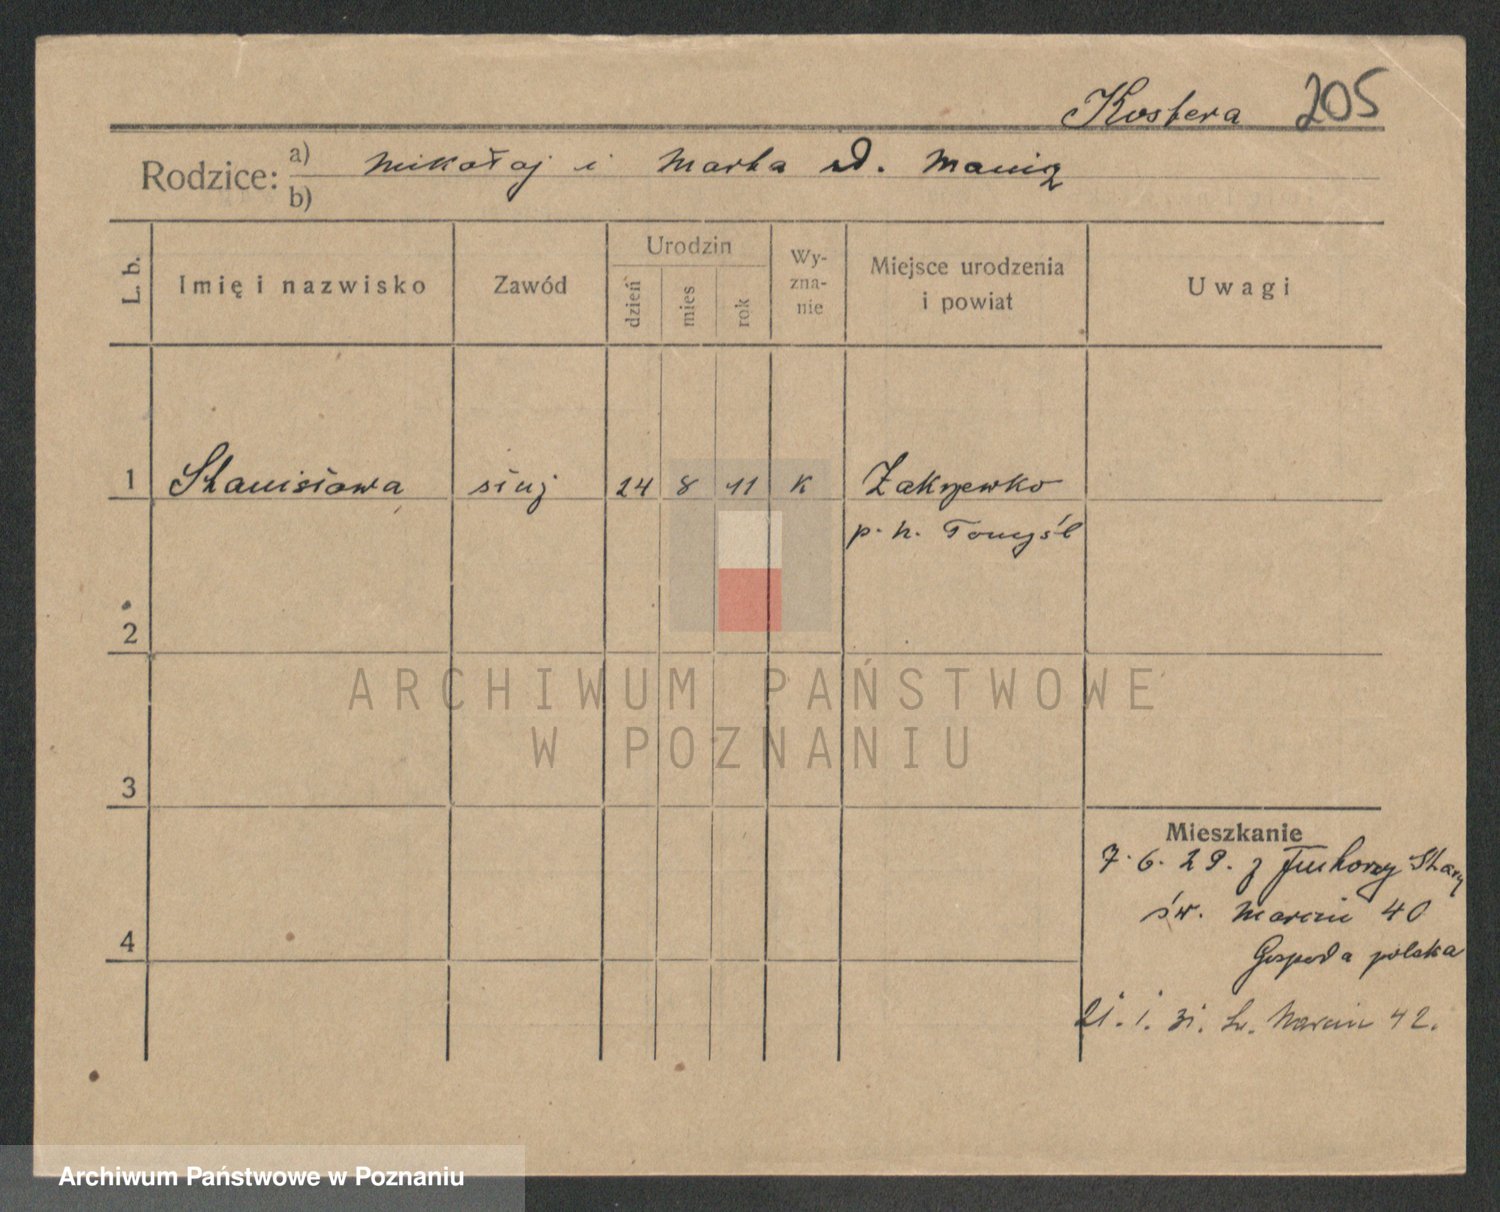 Kostera 205
Rodzice: a) Mikołaj i Marta
b)
L. b. Imię i nazwisko Zawód Urodzin dzień mies rok Wy-zna-nie Miejsce urodzenia i powiat Uwagi
1 Stanisława służ 24 8 11 K Zakrzewko
p. n. Tomyśl
2
ARCHIWUM PAŃSTWOWE
W POZNANIU
3
Mieszkanie
7. 6. 29. z Tuchorzy Stary
św. Marcin 40
4
Gospoda polska
21. 1. 31. św. Marcin 42.
Archiwum Państwowe w Poznaniu